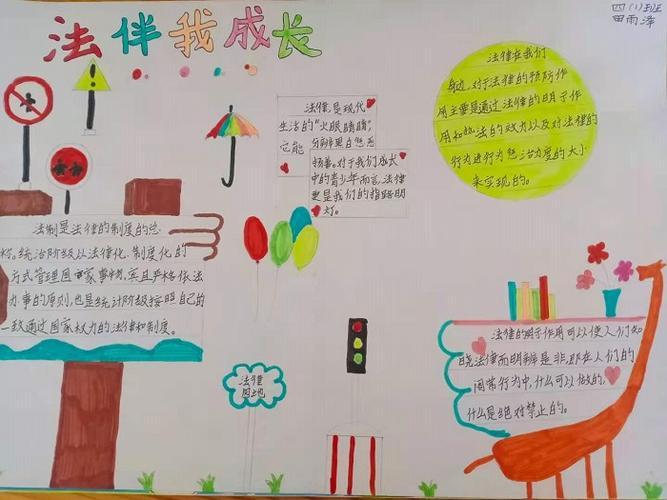 法伴我成长
四(1)班
田雨泽
法律是现代
生活的“火眼睛睛”,
它能分辨里白惩恶
扬善。对于我们成长
中的青少年而言,法律
更是我们的指路明
灯。
法律在我们
身边,对于法律的预防作
用主要是通过法律的明示作
用和执法的效力以及对法律的
行为进行为惩治力度的大小
来实现的。
法制是法律的制度的总
称。统治阶级以法律化、制度化的
方式管理国家事务,实且严格依法
办事的原则,也是统计阶级按照自己的
一致通过国家权力的法律和制度。
法律
园地
法律的明示作用可以使人们知
晓法律而明辨是非,即在人们的
闹常行为中,什么可以做的,
什么是绝对禁止的。